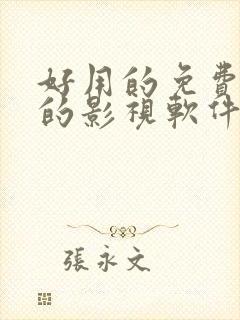 好用的免費
的影視軟件
張永文